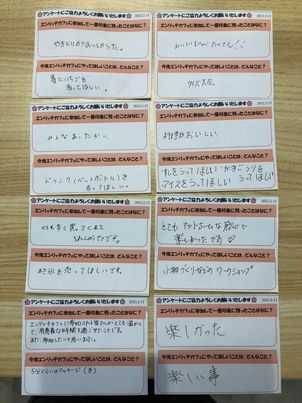 アンケートにご協力よろしくお願いいたします
2023.2.12
エンリッチカフェに参加して一番印象に残ったことはなに？
やきとりがおいしかった。
今後エンリッチカフェにやってほしいことは、どんなこと？
春にいちごを
売ってほしい。
アンケートにご協力よろしくお願いいたします
2023.2.12
エンリッチカフェに参加して一番印象に残ったことはなに？
今後エンリッチカフェにやってほしいことは、どんなこと？
クイズ大会
アンケートにご協力よろしくお願いいたします
2023.2.12
エンリッチカフェに参加して一番印象に残ったことはなに？
みんなあったかい
今後エンリッチカフェにやってほしいことは、どんなこと？
ドリンク(ペットボトル)を
売ってほしい。
アンケートにご協力よろしくお願いいたします
2023.2.12
エンリッチカフェに参加して一番印象に残ったことはなに？
料理がおいしい
今後エンリッチカフェにやってほしいことは、どんなこと？
アイスをうってほしい
アンケートにご協力よろしくお願いいたします
2023.2.12
エンリッチカフェに参加して一番印象に残ったことはなに？
とても多く来てくれて
うれしかったです。
今後エンリッチカフェにやってほしいことは、どんなこと？
かき氷を売ってほしいです。
アンケートにご協力よろしくお願いいたします
2023.2.12
エンリッチカフェに参加して一番印象に残ったことはなに？
とてもアットホームな感じで
楽しかったです♡
今後エンリッチカフェにやってほしいことは、どんなこと？
小物づくりなどのワークショップ
アンケートにご協力よろしくお願いいたします
2023.2.12
エンリッチカフェに参加して一番印象に残ったことはなに？
エンリッチカフェに参加された皆さんがとても温かくて、
有意義な時間を過ごせたことです。
また、参加したいと思います。
今後エンリッチカフェにやってほしいことは、どんなこと？
5分くらいのマッサージ
アンケートにご協力よろしくお願いいたします
2023.2.12
エンリッチカフェに参加して一番印象に残ったことはなに？
楽しかった
今後エンリッチカフェにやってほしいことは、どんなこと？
楽しい事